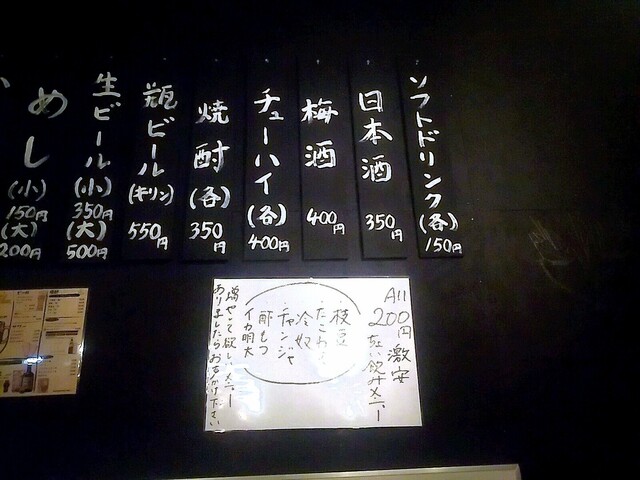 ソフトドリンク(各)
150円
日本酒
350円
梅酒
400円
チューハイ
(各)
400円
焼酎
(各)
350円
瓶ビール
(キリン)
550円
生ビール
(小)
350円
(大)
500円
めし
(小)
150円
(大)
200円
All
200円激安
ちょい飲みメニュー
枝豆
たこわさ
冷奴
チャンジャ
酢もつ
イカ明太
増やして欲しいメニュー
ありましたらお声がけ下さい